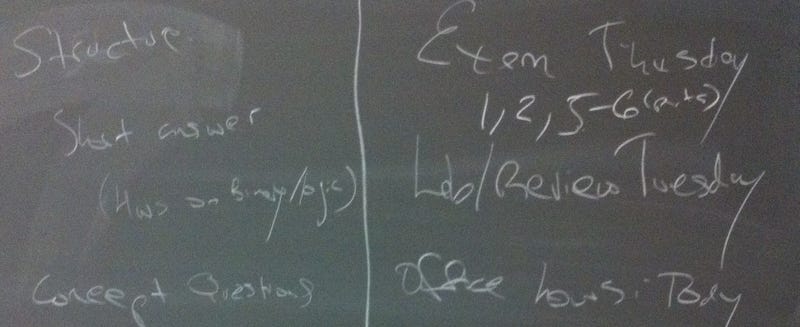 Structure
Short answer
(HWs on Binary/logic)
Concept Questions
Exam Thursday
1, 2, 5-6 (parts)
Lab/Review Tuesday
Office hours: Today